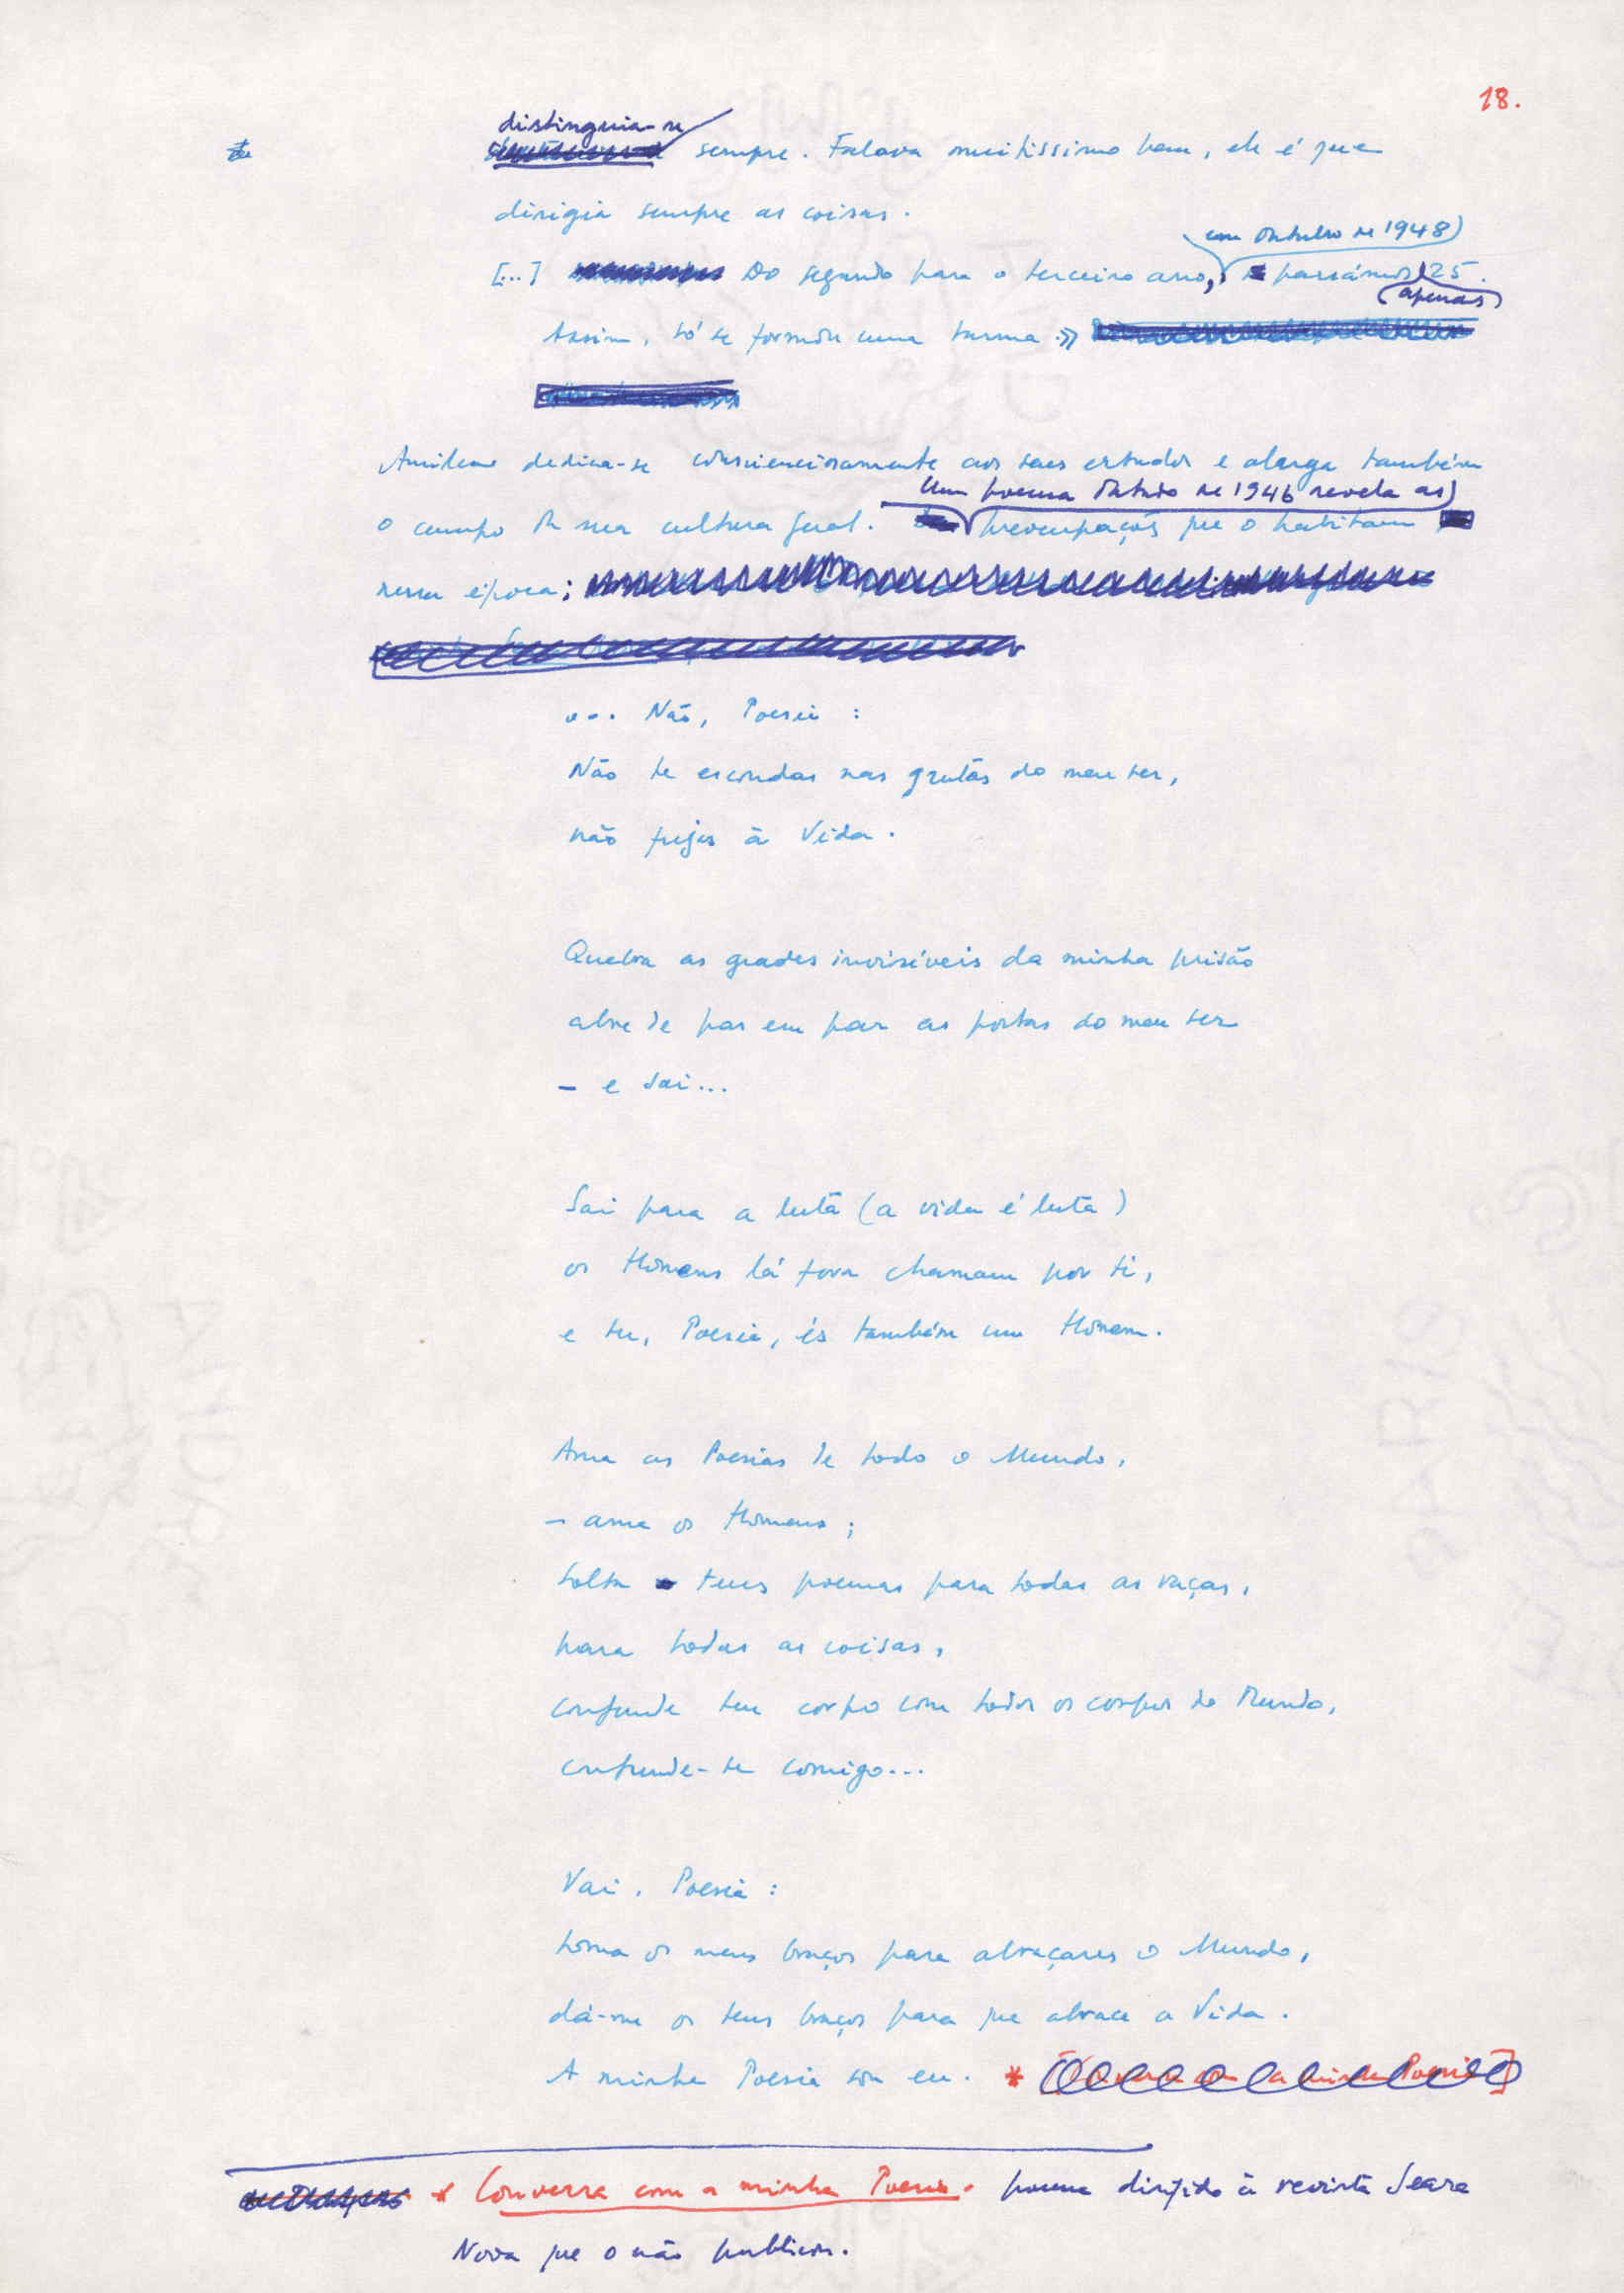 18.
distinguia-se sempre. Falava muitíssimo bem, ele é que
dirigia sempre as coisas.
[...] Do segundo para o terceiro ano, (em Outubro de 1948) passámos (apenas) 25.
Assim, só se formou uma turma.»
Amílcar dedica-se conscienciosamente aos seus estudos e alarga também
o campo da sua cultura geral. Um poema datado de 1946 revela as preocupações que o habitam
nessa época:
... Não, Poesia :
Não te escondas nas grutas do meu ser,
não fujas à Vida.
Quebra as grades invisíveis da minha prisão
abre de par em par as portas do meu ser
– e sai...
Sai para a luta (a vida é luta)
os Homens lá fora chamam por ti,
e tu, Poesia, és também um Homem.
Ama as Poesias de todo o Mundo,
– ama os Homens ;
Solta teus poemas para todas as raças,
para todas as coisas,
confunde teu corpo com todos os corpos do Mundo,
confunde-te comigo...
Vai, Poesia :
toma os meus braços para abraçares o Mundo,
dá-me os teus braços para que abrace a Vida.
A minha Poesia sou eu. *
* Conversa com a minha Poesia. poema dirigido à revista Seara
Nova que o não publicou.